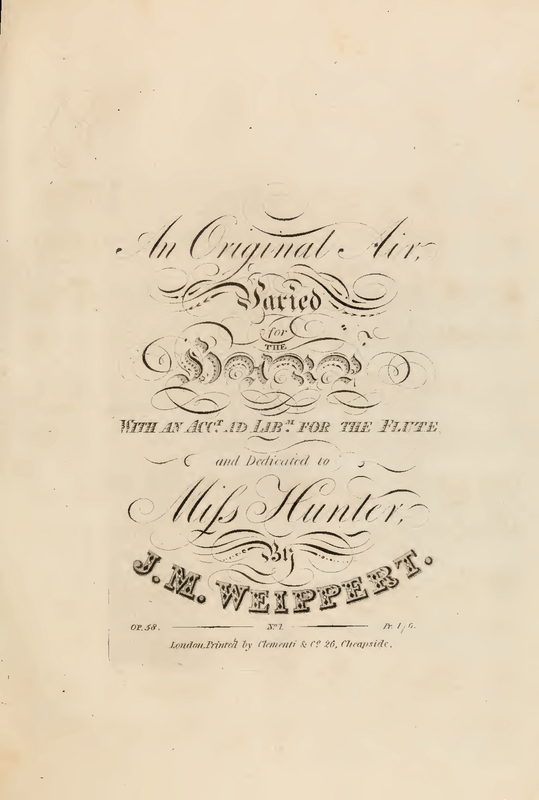 An Original Air,
Varied
for
THE
Harp,
WITH AN ACC.T AD LIB.M FOR THE FLUTE
and Dedicated to
Miſs Hunter,
By
J. M. WEIPPERT.
OP. 58. No. 1. Pr. 1/6.
London, Printed by Clementi & Co. 26, Cheapside.